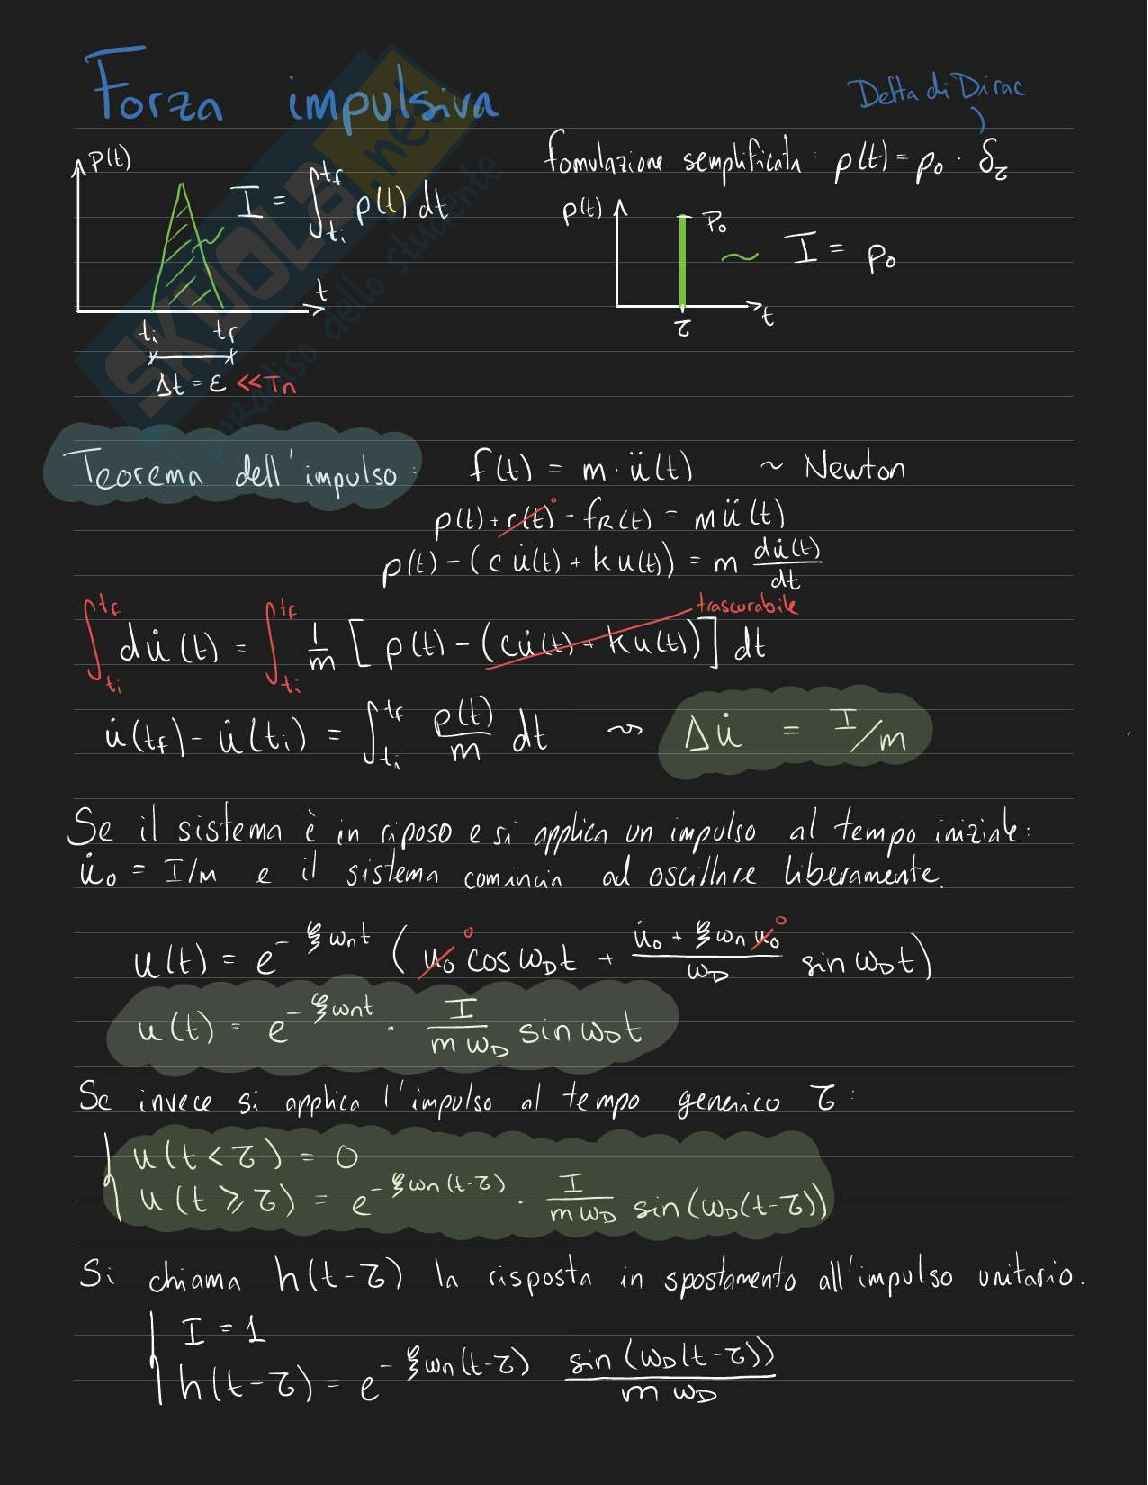 Forza impulsiva
Delta di Dirac
p(t)
I = ∫_{ti}^{tf} p(t) dt
t
ti tf
Δt = ε << Tn
fomulazione semplificata: p(t) = p₀ · δ_τ
p(t)
P₀
~ I = p₀
τ
t
Teorema dell'impulso: f(t) = m · ü(t) ~ Newton
p(t) + r(t) 0 - f_R(t) = m ü(t)
p(t) - (c u̇(t) + k u(t)) = m du̇(t)/dt
trascurabile
∫_{ti}^{tf} du̇(t) = ∫_{ti}^{tf} 1/m [p(t) - (cu̇(t) + ku(t))] dt
u̇(tf) - u̇(ti) = ∫_{ti}^{tf} p(t)/m dt ~> Δu̇ = I/m
Se il sistema è in riposo e si applica un impulso al tempo iniziale:
u̇₀ = I/m e il sistema comincia ad oscillare liberamente.
u(t) = e^{-ξωnt} (u₀ 0 cos ω_D t + (u̇₀ + ξωn u₀ 0)/ω_D sin ω_D t)
u(t) = e^{-ξωnt} · I/(m ω_D) sin ω_D t
Se invece si applica l'impulso al tempo generico τ:
u(t < τ) = 0
u(t ⩾ τ) = e^{-ξωn(t-τ)} · I/(m ω_D) sin(ω_D(t-τ))
Si chiama h(t-τ) la risposta in spostamento all'impulso unitario.
I = 1
h(t-τ) = e^{-ξωn(t-τ)} sin(ω_D(t-τ))/(m ω_D)
SKUOLA.net
paradiso dello studente